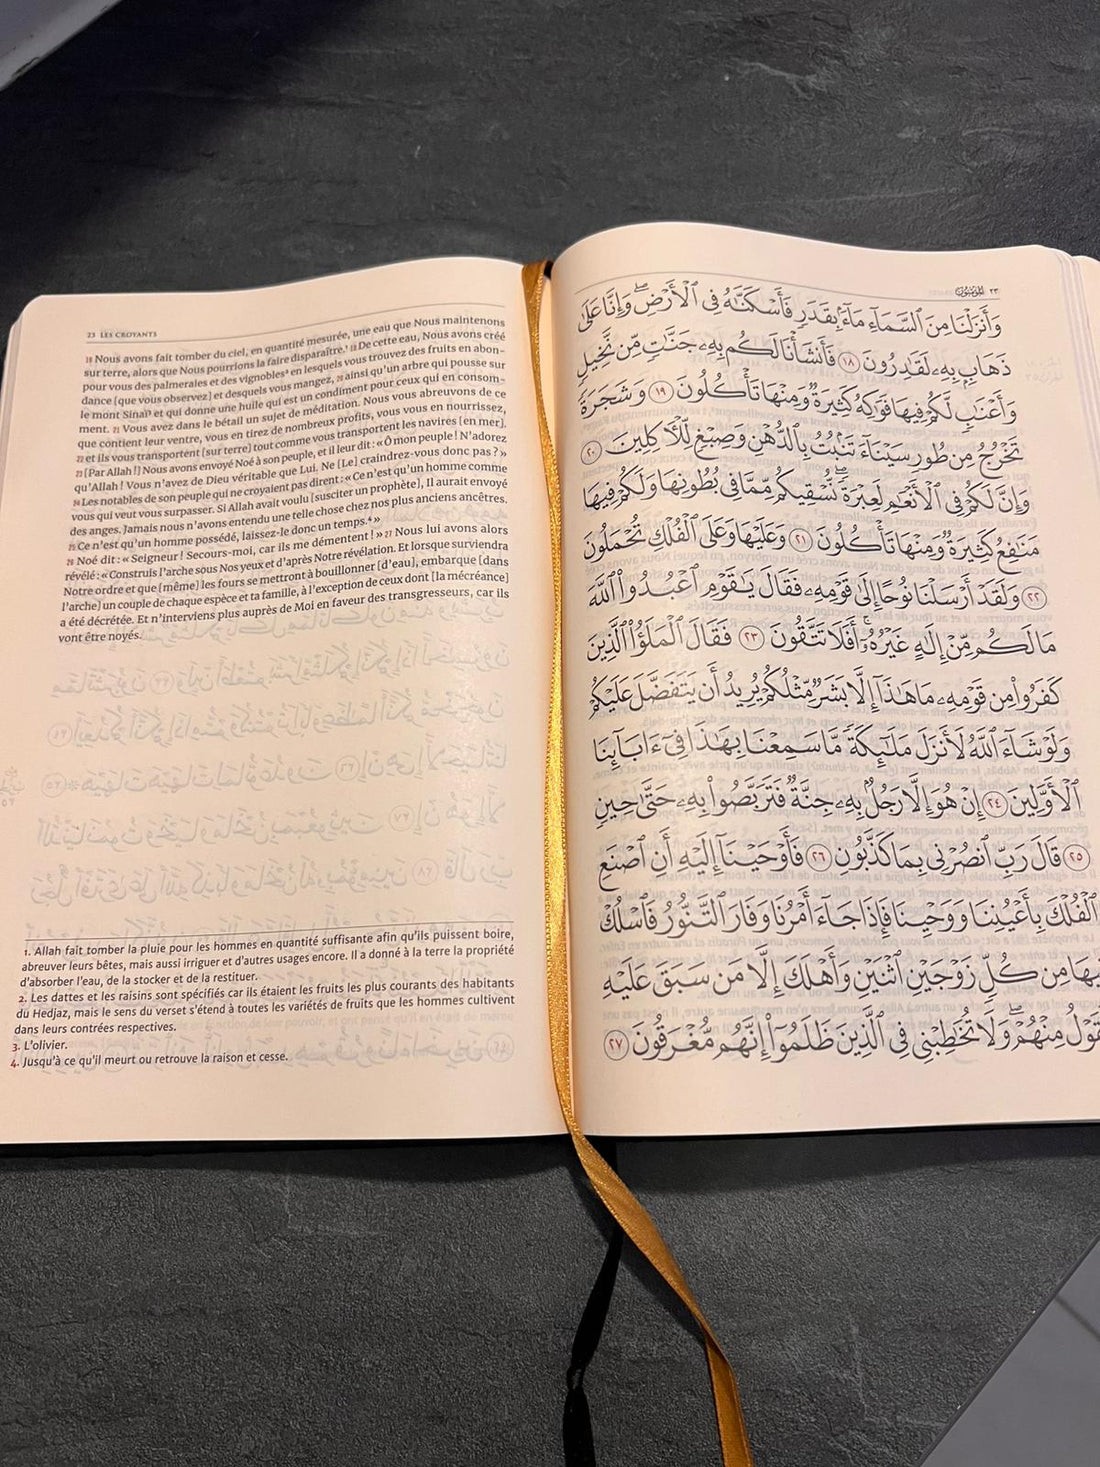 23 LES CROYANTS
18 Nous avons fait tomber du ciel, en quantité mesurée, une eau que Nous maintenons
sur terre, alors que Nous pourrions la faire disparaître.¹ 19 De cette eau, Nous avons créé
pour vous des palmeraies et des vignobles² en lesquels vous trouvez des fruits en abon-
dance [que vous observez] et desquels vous mangez, 20 ainsi qu'un arbre qui pousse sur
le mont Sinaï³ et qui donne une huile qui est un condiment pour ceux qui en consom-
ment. 21 Vous avez dans le bétail un sujet de méditation. Nous vous abreuvons de ce
que contient leur ventre, vous en tirez de nombreux profits, vous vous en nourrissez,
22 et ils vous transportent [sur terre] tout comme vous transportent les navires [en mer].
23 [Par Allah !] Nous avons envoyé Noé à son peuple, et il leur dit : « Ô mon peuple ! N'adorez
qu'Allah ! Vous n'avez de Dieu véritable que Lui. Ne [Le] craindrez-vous donc pas ? »
24 Les notables de son peuple qui ne croyaient pas dirent : « Ce n'est qu'un homme comme
vous qui veut vous surpasser. Si Allah avait voulu [susciter un prophète], Il aurait envoyé
des anges. Jamais nous n'avons entendu une telle chose chez nos plus anciens ancêtres.
25 Ce n'est qu'un homme possédé, laissez-le donc un temps.⁴ »
26 Noé dit : « Seigneur ! Secours-moi, car ils me démentent ! » 27 Nous lui avons alors
révélé : « Construis l'arche sous Nos yeux et d'après Notre révélation. Et lorsque surviendra
Notre ordre et que [même] les fours se mettront à bouillonner [d'eau], embarque [dans
l'arche] un couple de chaque espèce et ta famille, à l'exception de ceux dont [la mécréance]
a été décrétée. Et n'interviens plus auprès de Moi en faveur des transgresseurs, car ils
vont être noyés.
1. Allah fait tomber la pluie pour les hommes en quantité suffisante afin qu'ils puissent boire,
abreuver leurs bêtes, mais aussi irriguer et d'autres usages encore. Il a donné à la terre la propriété
d'absorber l'eau, de la stocker et de la restituer.
2. Les dattes et les raisins sont spécifiés car ils étaient les fruits les plus courants des habitants
du Hedjaz, mais le sens du verset s'étend à toutes les variétés de fruits que les hommes cultivent
dans leurs contrées respectives.
3. L'olivier.
4. Jusqu'à ce qu'il meurt ou retrouve la raison et cesse.
٢٣ المؤمنون
وَأَنزَلْنَا مِنَ ٱلسَّمَآءِ مَآءًۢ بِقَدَرٍ فَأَسْكَنَّـٰهُ فِى ٱلْأَرْضِ ۖ وَإِنَّا عَلَىٰ
ذَهَابٍۭ بِهِۦ لَقَـٰدِرُونَ ١٨ فَأَنشَأْنَا لَكُم بِهِۦ جَنَّـٰتٍ مِّن نَّخِيلٍ
وَأَعْنَـٰبٍ لَّكُمْ فِيهَا فَوَٰكِهُ كَثِيرَةٌ وَمِنْهَا تَأْكُلُونَ ١٩ وَشَجَرَةً
تَخْرُجُ مِن طُورِ سَيْنَآءَ تَنۢبُتُ بِٱلدُّهْنِ وَصِبْغٍ لِّلْـَٔاكِلِينَ ٢٠
وَإِنَّ لَكُمْ فِى ٱلْأَنْعَـٰمِ لَعِبْرَةً ۖ نُّسْقِيكُم مِّمَّا فِى بُطُونِهَا وَلَكُمْ فِيهَا
مَنَـٰفِعُ كَثِيرَةٌ وَمِنْهَا تَأْكُلُونَ ٢١ وَعَلَيْهَا وَعَلَى ٱلْفُلْكِ تُحْمَلُونَ
٢٢ وَلَقَدْ أَرْسَلْنَا نُوحًا إِلَىٰ قَوْمِهِۦ فَقَالَ يَـٰقَوْمِ ٱعْبُدُوا۟ ٱللَّهَ
مَا لَكُم مِّنْ إِلَـٰهٍ غَيْرُهُۥٓ ۚ أَفَلَا تَتَّقُونَ ٢٣ فَقَالَ ٱلْمَلَؤُا۟ ٱلَّذِينَ
كَفَرُوا۟ مِن قَوْمِهِۦ مَا هَـٰذَآ إِلَّا بَشَرٌ مِّثْلُكُمْ يُرِيدُ أَن يَتَفَضَّلَ عَلَيْكُمْ
وَلَوْ شَآءَ ٱللَّهُ لَأَنزَلَ مَلَـٰٓئِكَةً مَّا سَمِعْنَا بِهَـٰذَا فِىٓ ءَابَآئِنَا
ٱلْأَوَّلِينَ ٢٤ إِنْ هُوَ إِلَّا رَجُلٌۢ بِهِۦ جِنَّةٌ فَتَرَبَّصُوا۟ بِهِۦ حَتَّىٰ حِينٍ
٢٥ قَالَ رَبِّ ٱنصُرْنِى بِمَا كَذَّبُونِ ٢٦ فَأَوْحَيْنَآ إِلَيْهِ أَنِ ٱصْنَعِ
ٱلْفُلْكَ بِأَعْيُنِنَا وَوَحْيِنَا فَإِذَا جَآءَ أَمْرُنَا وَفَارَ ٱلتَّنُّورُ ۙ فَٱسْلُكْ
فِيهَا مِن كُلٍّ زَوْجَيْنِ ٱثْنَيْنِ وَأَهْلَكَ إِلَّا مَن سَبَقَ عَلَيْهِ
ٱلْقَوْلُ مِنْهُمْ ۖ وَلَا تُخَـٰطِبْنِى فِى ٱلَّذِينَ ظَلَمُوٓا۟ ۖ إِنَّهُم مُّغْرَقُونَ ٢٧